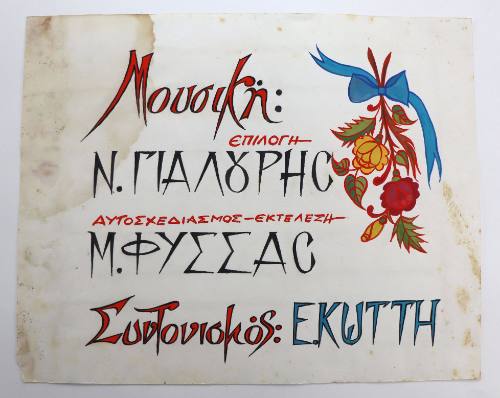 Μουσική:
ΕΠΙΛΟΓΗ
Ν. ΓΙΑΛΟΥΡΗΣ
ΑΥΤΟΣΧΕΔΙΑΣΜΟΣ - ΕΚΤΕΛΕΣΗ
Μ. ΦΥΣΣΑΣ
Συντονισμός: Ε. ΚΩΤΤΗ